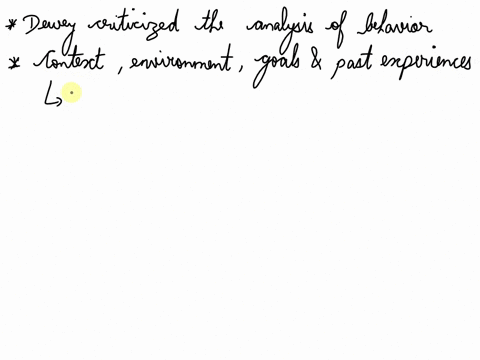 * Dewey criticized the analysis of behavior
* Context, environment, goals & past experiences
↳